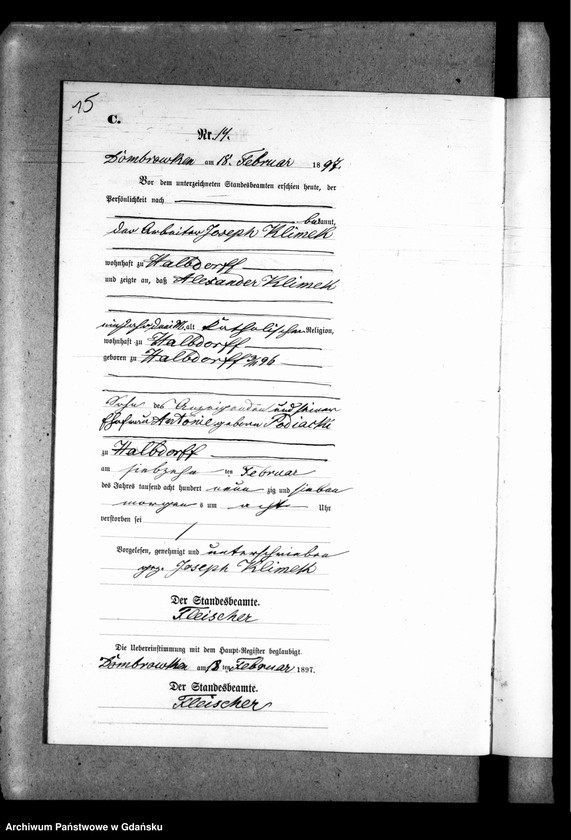 15
C.
Nr. 14.
Dombrowken am 18. Februar 1897.
Vor dem unterzeichneten Standesbeamten erschien heute, der
Persönlichkeit nach
bekannt,
der Arbeiter Joseph Klimek
wohnhaft zu Halbdorff
und zeigte an, daß Alexander Klimek
alt katholischer Religion,
wohnhaft zu Halbdorff
geboren zu Halbdorff
Sohn des Anzeigenden und seiner
Ehefrau Antonie geboren
zu Halbdorff
am siebzehn ten Februar
des Jahres tausend acht hundert neun zig und sieben
morgens um acht Uhr
verstorben sei
Vorgelesen, genehmigt und unterschrieben
gez. Joseph Klimek
Der Standesbeamte.
Fleischer
Die Uebereinstimmung mit dem Haupt-Register beglaubigt.
Dombrowken am 18 ten Februar 1897.
Der Standesbeamte.
Fleischer
Archiwum Państwowe w Gdańsku